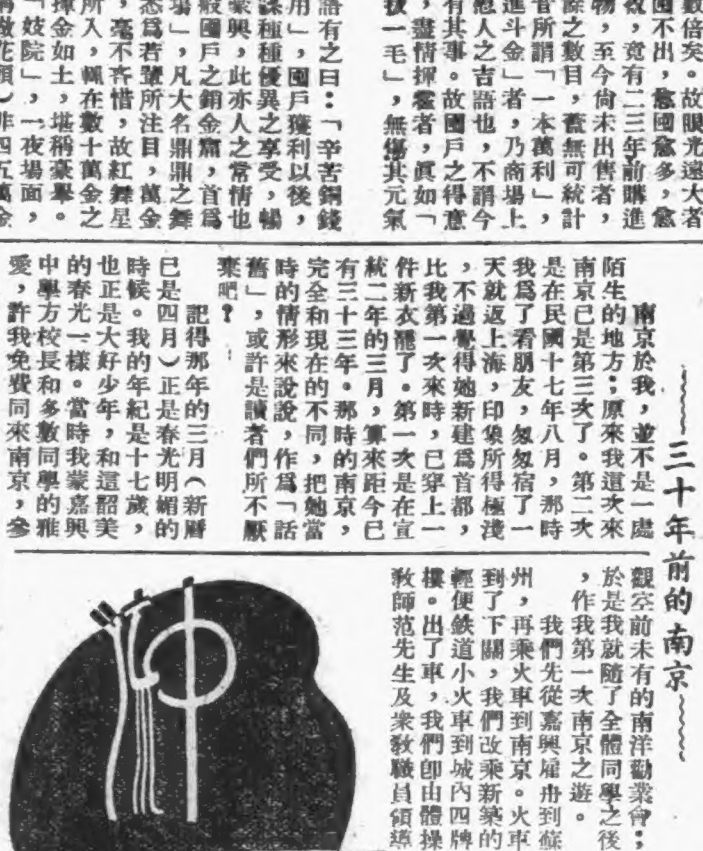 數倍矣。故眼光遠大者
囤不出,愈囤愈多,愈
,竟有二三年前購進
物,至今尚未出售者,
餘之數目,無可統計
昔所謂「一本萬利」,
進斗金」者,乃商場上
他人之吉語也,不謂今
有其事。故囤戶之得意
,盡情揮霍者,眞如「
拔一毛」,無傷其元氣
語有之曰:「辛苦銅錢
用」,囤戶獲利以後,
謀種種優異之享受,暢
豪興,此亦人之常情也
般囤戶之銷金窟,首爲
場」,凡大名鼎鼎之舞
悉爲若輩所注目,萬金
,毫不吝惜,故紅舞星
所入,輒在數十萬金之
揮金如土,堪稱豪舉。
「妓院」,一夜場面,
做花頭)非四五萬金
三十年前的南京
南京於我,並不是一處
陌生的地方;原來我這次來
南京已是第三次了。第二次
是在民國十七年八月,那時
我爲了看朋友,匆匆宿了一
天就返上海,印象所得極淺
,不過覺得她新建爲首都,
比我第一次來時,已穿上一
件新衣罷了。第一次是在宣
統二年的三月,算來距今已
有三十三年。那時的南京,
完全和現在的不同,把她當
時的情形來說說,作爲「話
舊」,或許是讀者們所不厭
棄吧?
記得那年的三月(新曆
已是四月)正是春光明媚的
時候。我的年紀是十七歲,
也正是大好少年,和這韶美
的春光一樣。當時我蒙嘉興
中學方校長和多數同學的雅
愛,許我免費同來南京,參
觀空前未有的南洋勸業會;
於是我就隨了全體同學之後
,作我第一次南京之遊。
我們先從嘉興雇舟到蘇
州,再乘火車到南京。火車
到了下關,我們改乘新築的
輕便鉄道小火車到城內四牌
樓。出了車,我們卽由體操
教師范先生及衆教職員領導